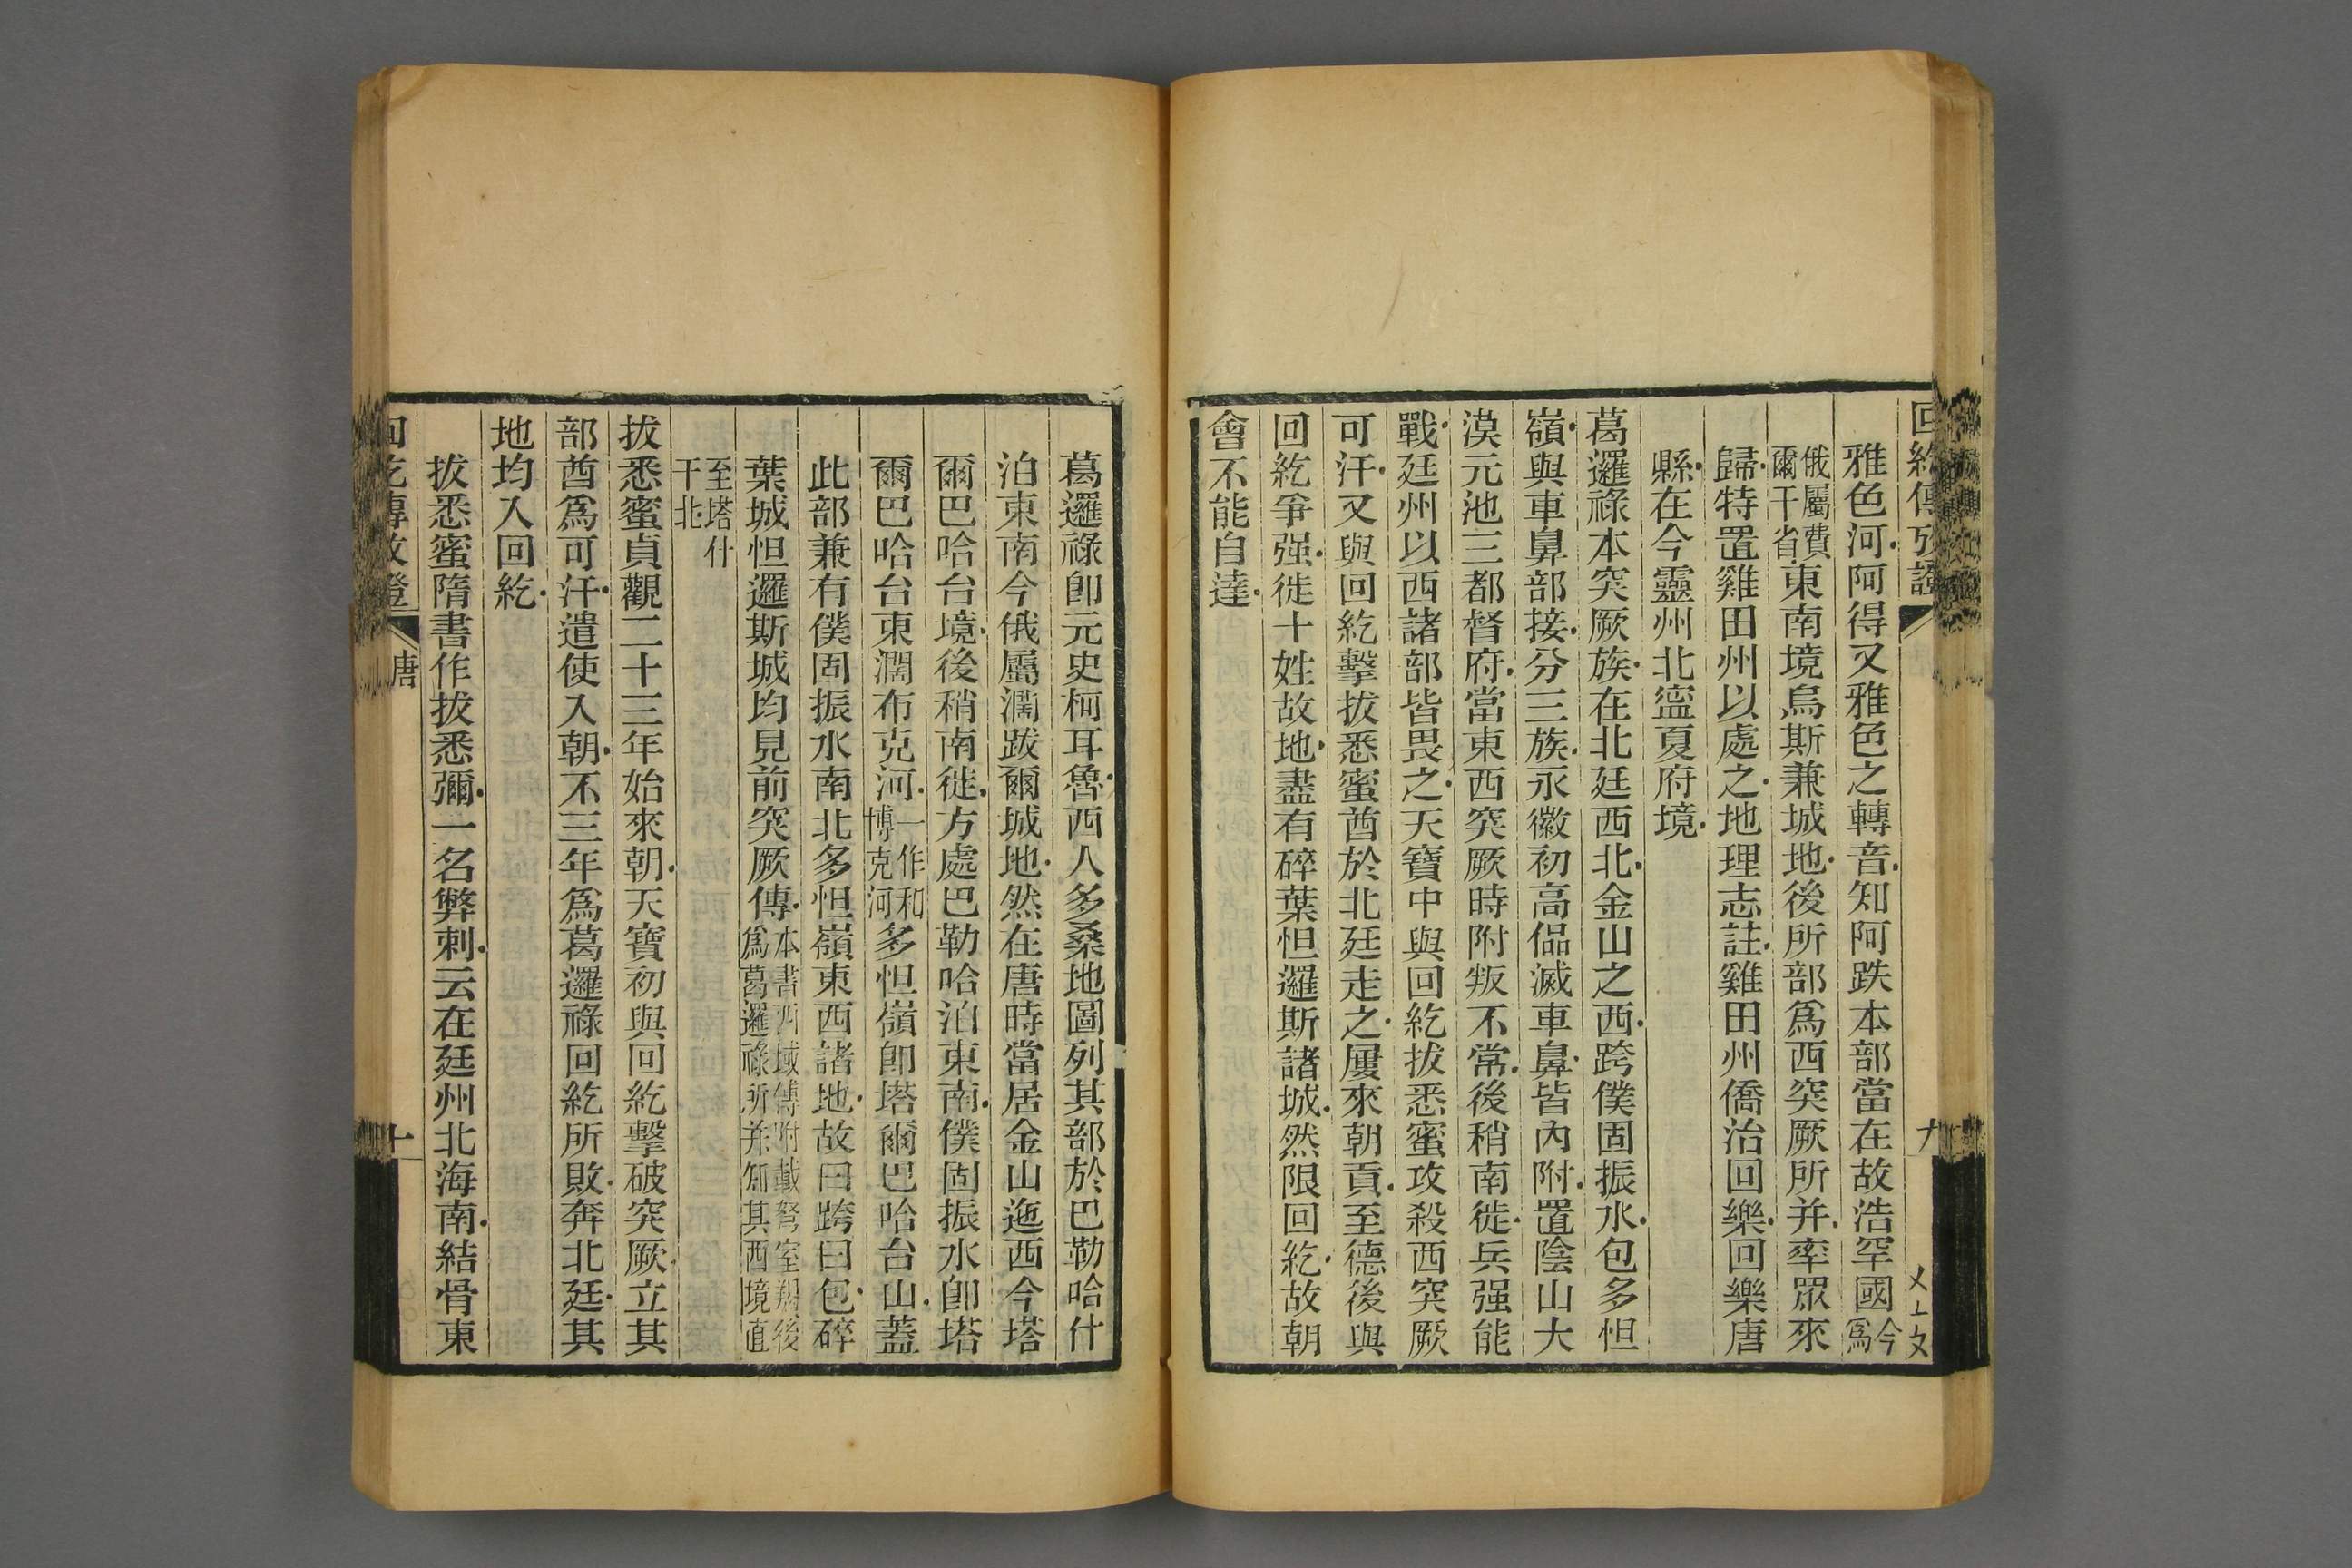 回紇傳攷證
九
雅色河阿得又雅色之轉音知阿跌本部當在故浩罕國今爲
俄屬費爾干省東南境烏斯兼城地後所部爲西突厥所并率眾來
歸特置雞田州以處之地理志註雞田州僑治回樂回樂唐
縣在今靈州北寍夏府境
葛邏祿本突厥族在北廷西北金山之西跨僕固振水包多怛
嶺與車鼻部接分三族永徽初高偘滅車鼻皆內附置陰山大
漠元池三都督府當東西突厥時附叛不常後稍南徙兵强能
戰廷州以西諸部皆畏之天寶中與回紇拔悉蜜攻殺西突厥
可汗又與回紇擊拔悉蜜酋於北廷走之屢來朝貢至德後與
回紇爭强徙十姓故地盡有碎葉怛邏斯諸城然限回紇故朝
會不能自達
葛邏祿卽元史柯耳魯西人多桑地圖列其部於巴勒哈什
泊東南今俄屬濶跋爾城地然在唐時當居金山迤西今塔
爾巴哈台境後稍南徙方處巴勒哈泊東南僕固振水卽塔
爾巴哈台東濶布克河一作和博克河多怛嶺卽塔爾巴哈台山蓋
此部兼有僕固振水南北多怛嶺東西諸地故曰跨曰包碎
葉城怛邏斯城均見前突厥傳本書西域傳附載弩室羯後爲葛邏祿所并知其西境直
至塔什干北
拔悉蜜貞觀二十三年始來朝天寶初與回紇擊破突厥立其
部酋爲可汗遣使入朝不三年爲葛邏祿回紇所敗奔北廷其
地均入回紇
拔悉蜜隋書作拔悉彌一名弊剌云在廷州北海南結骨東
回紇傳攷證
唐
十